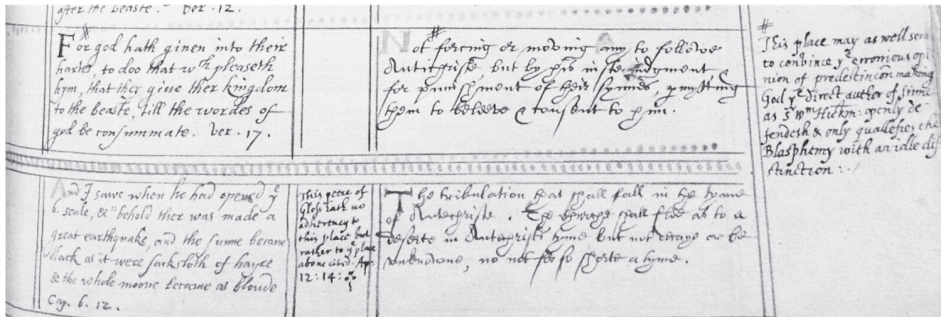 after the beaste. Ver. 12.
For god hath given into their
harts, to doo that wch pleaseth
hym, that they give ther kingdom
to the beaste, till the wordes of
god be consummate. Ver. 17.
Not forcing or moving any to followe
Antichriste, but by his iuste iudgment
for punishment of their synnes, p'mytting
them to beleeve & consent to him.
#
This place may as well serve
to convince ye erronious opi
nion of predestination making
God ye direct author of sinne
as Sr Wm Hickm: openly de
fendeth & only qualifies the
Blasphemy with an idle dis
tinction :
And I sawe when he had opened ye
6. seale, & behold ther was made a
great earthquake, and the sunne became
black as it were sackcloth of hayre
& the whole moone became as bloude
Cap. 6. 12.
This peece of
Glosse hath no
to
this place but
rather to ye place
above cited. Ap.
12:14:
The tribulation that shall fall in the tyme
of Antechriste. The churche shall flee as to a
deserte in Antechrists tyme but not decaye or be
unknowne, no not for so shorte a tyme.